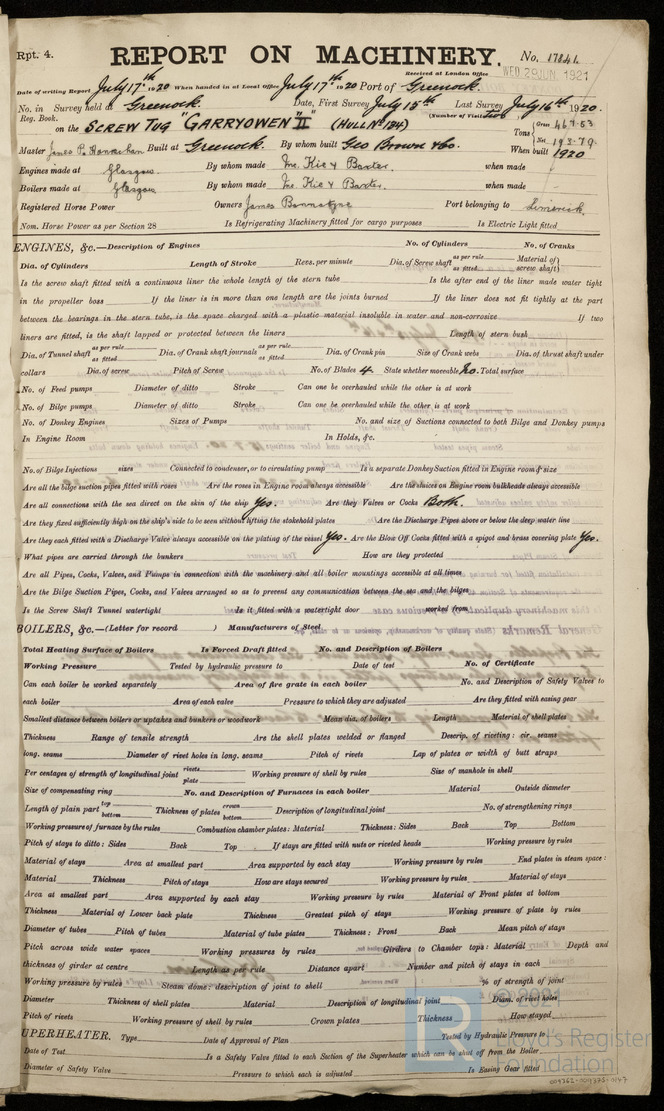 Rpt. 4.
REPORT ON MACHINERY.
No. 17841.
Received at London Office
WED 29 JUN. 1921
Date of writing Report July 17th 1920 When handed in at Local Office July 17th 1920 Port of Greenock.
No. in Survey held at Greenock. Date, First Survey July 15th Last Survey July 16th 1920.
Reg. Book. (Number of Visits Two)
on the SCREW TUG "GARRYOWEN II" (HULL No 124) Tons Gross 467.53 Net 193.79
Master Built at Greenock. By whom built Geo Brown & Co. When built 1920
Engines made at Glasgow. By whom made Mc. Kie & Baxter. when made
Boilers made at Glasgow By whom made Mc. Kie & Baxter. when made
Registered Horse Power Owners James Bannatyne Port belonging to Limerick.
Nom. Horse Power as per Section 28 Is Refrigerating Machinery fitted for cargo purposes Is Electric Light fitted
ENGINES, &c.—Description of Engines No. of Cylinders No. of Cranks
Dia. of Cylinders Length of Stroke Revs. per minute Dia. of Screw shaft as per rule as fitted Material of screw shaft
Is the screw shaft fitted with a continuous liner the whole length of the stern tube Is the after end of the liner made water tight
in the propeller boss If the liner is in more than one length are the joints burned If the liner does not fit tightly at the part
between the bearings in the stern tube, is the space charged with a plastic material insoluble in water and non-corrosive If two
liners are fitted, is the shaft lapped or protected between the liners Length of stern bush
Dia. of Tunnel shaft as per rule as fitted Dia. of Crank shaft journals as per rule as fitted Dia. of Crank pin Size of Crank webs Dia. of thrust shaft under
collars Dia. of screw Pitch of Screw No. of Blades 4. State whether moveable No. Total surface
No. of Feed pumps Diameter of ditto Stroke Can one be overhauled while the other is at work
No. of Bilge pumps Diameter of ditto Stroke Can one be overhauled while the other is at work
No. of Donkey Engines Sizes of Pumps No. and size of Suctions connected to both Bilge and Donkey pumps
In Engine Room In Holds, &c.
No. of Bilge Injections sizes Connected to condenser, or to circulating pump Is a separate Donkey Suction fitted in Engine room & size
Are all the bilge suction pipes fitted with roses Are the roses in Engine room always accessible Are the sluices on Engine room bulkheads always accessible
Are all connections with the sea direct on the skin of the ship Yes. Are they Valves or Cocks Both.
Are they fixed sufficiently high on the ship's side to be seen without lifting the stokehold plates Are the Discharge Pipes above or below the deep water line
Are they each fitted with a Discharge Valve always accessible on the plating of the vessel Yes. Are the Blow Off Cocks fitted with a spigot and brass covering plate Yes.
What pipes are carried through the bunkers How are they protected
Are all Pipes, Cocks, Valves, and Pumps in connection with the machinery and all boiler mountings accessible at all times
Are the Bilge Suction Pipes, Cocks, and Valves arranged so as to prevent any communication between the sea and the bilges
Is the Screw Shaft Tunnel watertight Is it fitted with a watertight door worked from
BOILERS, &c.—(Letter for record ) Manufacturers of Steel
Total Heating Surface of Boilers Is Forced Draft fitted No. and Description of Boilers
Working Pressure Tested by hydraulic pressure to Date of test No. of Certificate
Can each boiler be worked separately Area of fire grate in each boiler No. and Description of Safety Valves to
each boiler Area of each valve Pressure to which they are adjusted Are they fitted with easing gear
Smallest distance between boilers or uptakes and bunkers or woodwork Mean dia. of boilers Length Material of shell plates
Thickness Range of tensile strength Are the shell plates welded or flanged Descrip. of riveting: cir. seams
long. seams Diameter of rivet holes in long. seams Pitch of rivets Lap of plates or width of butt straps
Per centages of strength of longitudinal joint rivets plate Working pressure of shell by rules Size of manhole in shell
Size of compensating ring No. and Description of Furnaces in each boiler Material Outside diameter
Length of plain part top bottom Thickness of plates crown bottom Description of longitudinal joint No. of strengthening rings
Working pressure of furnace by the rules Combustion chamber plates: Material Thickness: Sides Back Top Bottom
Pitch of stays to ditto: Sides Back Top If stays are fitted with nuts or riveted heads Working pressure by rules
Material of stays Area at smallest part Area supported by each stay Working pressure by rules End plates in steam space:
Material Thickness Pitch of stays How are stays secured Working pressure by rules Material of stays
Area at smallest part Area supported by each stay Working pressure by rules Material of Front plates at bottom
Thickness Material of Lower back plate Thickness Greatest pitch of stays Working pressure of plate by rules
Diameter of tubes Pitch of tubes Material of tube plates Thickness: Front Back Mean pitch of stays
Pitch across wide water spaces Working pressures by rules Girders to Chamber tops: Material Depth and
thickness of girder at centre Length as per rule Distance apart Number and pitch of stays in each
Working pressure by rules Steam dome: description of joint to shell % of strength of joint
Diameter Thickness of shell plates Material Description of longitudinal joint Diam. of rivet holes
Pitch of rivets Working pressure of shell by rules Crown plates Thickness How stayed
UPERHEATER. Type Date of Approval of Plan Tested by Hydraulic Pressure to
Date of Test Is a Safety Valve fitted to each Section of the Superheater which can be shut off from the Boiler
Diameter of Safety Valve Pressure to which each is adjusted Is Easing Gear fitted
© 2021
Lloyd's Register
Foundation